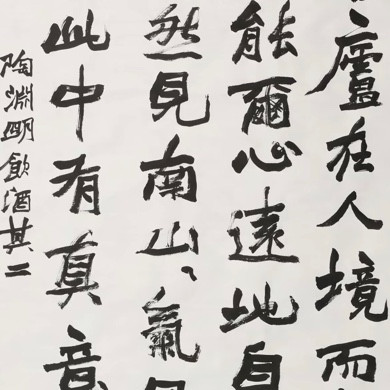 廬在人境而
能爾心遠地自
然見南山〻氣
此中有真意
陶淵明飲酒其二